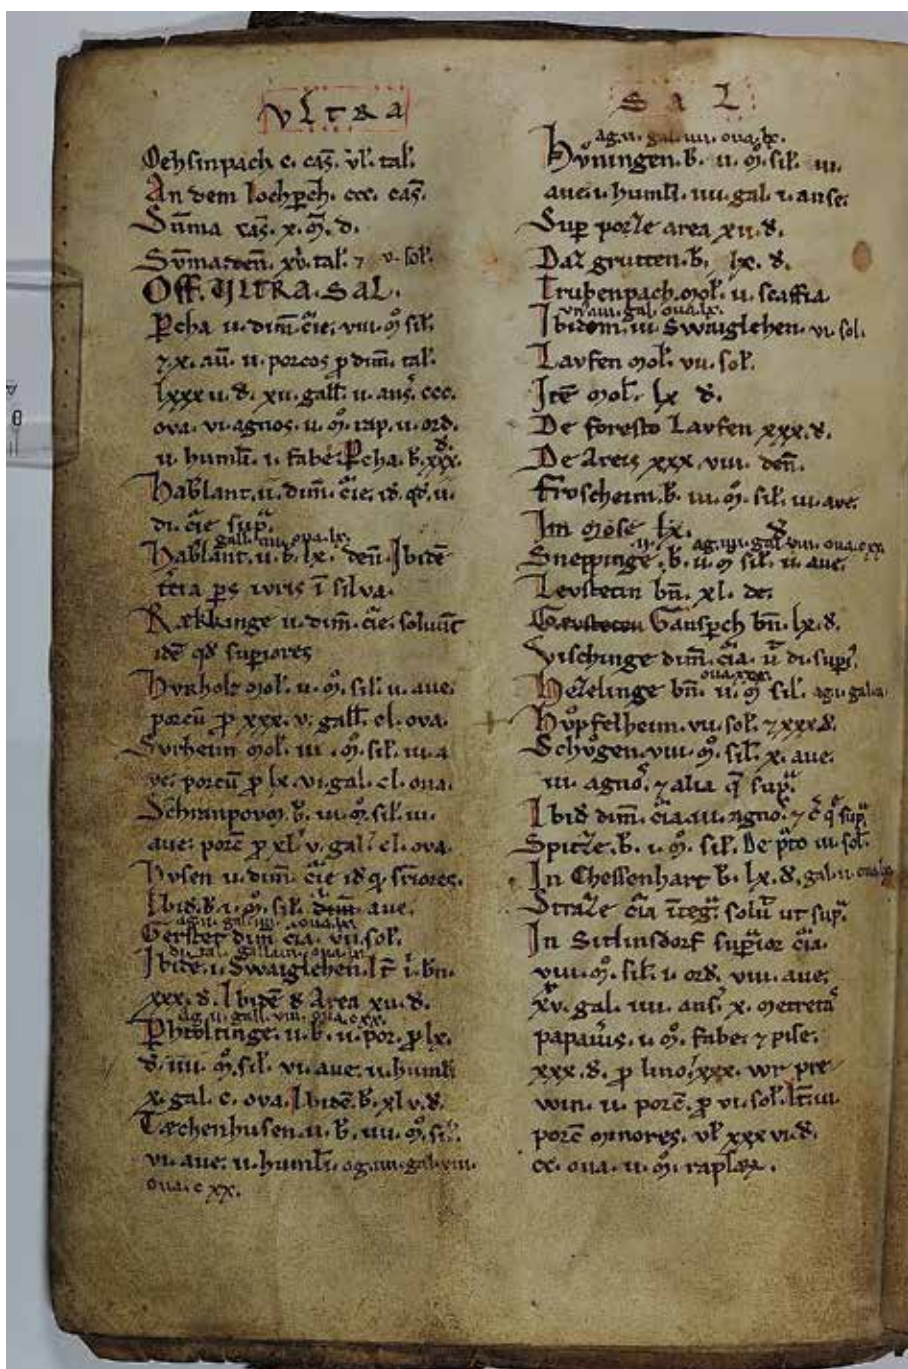 VLTRA
Oehsinpach c. cas. vl. tal.
An dem lochpch. ccc. cas.
Suma cas. x. m. d.
Suma den. xv. tal. ⁊ v. sol.
Off. ULTRA. SAL.
Pcha ii. dim. cie. viii. m. sil.
⁊ x. au. ii. porcos p dim. tal.
lxxx ii. d. xii. gall. ii. ans. ccc.
ova. vi. agnos. ii. m. rap. ii. ord.
ii. humli. i. fabe. Pcha. b. xxx. d.
Hablant. ii. dim. cie. id. qd. ii.
di. cie sup.
gall. iiii. ova. lx.
Hablant. ii. b. lx. den. Ibide
tcia ps iuris i silva.
Rækkinge ii. dim. cie. soluut
ide qd superiores
Hvrholz mol. ii. m. sil. ii. ave.
porcu p xxx. v. gall. cl. ova.
Svrheim mol. iii. m. sil. iii. a
ve. porcu p lx. vi. gal. cl. ova.
Schranpovm. b. iii. m. sil. iii.
ave. porc p xl. v. gal. cl. ova.
Hvsen ii. dim. cie id q. sciores.
Ibid. b. i. m. sil. ave.
ag. ii. gal. iiii. ova. lx
Gerstet dim cia. vii. sol.
Ibide. i. Swaiglehen. It. i. bn.
xxx. d. Ibide d Area xii. d.
ag. ii. gall. viii. ova. c xx.
Phtoltinge. ii. b. ii. por. p lx.
d. iiii. m. sil. vi. ave. ii. humli
x. gal. c. ova. Ibide. b. xl v. d.
Tæchenhusen. ii. b. iiii. m. sil.
vi. ave. ii. humli. ag. iiii. gal. viii.
ova. c xx.
SAL
ag. ii. gal. iiii. ova. lx.
Hvningen. b. ii. m. sil. iii.
ave. i. humli. iiii. gal. i. anse.
Sup porze area xii. d.
Daz grutten. b. lx. d.
Trubenpach. mol. ii. scaffia
gal. ova. lx.
Ibidem. iii Swaiglehen. vi. sol.
Lavfen mol. vii. sol.
Ite mol. lx d.
De foresto Lavfen xxx. d.
De Areis xxx. viii. den.
Froscheim. b. iii. m. sil. iii. ave.
Im mose lx. d.
ii. ag. iiii. gal. viii. ova. c xx.
Sneppinge. b. ii. m sil. ii. ave.
Levstetin bn. xl. de.
Ganspch bn. lx. d.
Vischinge dim. cia. ut di. sup.
ova. xxx.
Hezelinge bn. ii. m sil. ag. i. gal. ii
Hvpfelheim. vii. sol. ⁊ xxx d.
Schvgen. viii. m. sil. x. ave.
iii. agno. ⁊ alia q sup.
Ibid dim. cia. iii. agno. ⁊ c q sup.
Spitze. b. i. m. sil. De pto iii. sol.
In Chessenhart b. lx. d. gal. ii. ova. lx
Straze cia integ. solu ut sup.
In Sitlinsdorf supior cia.
viii. m. sil. i. ord. viii. ave.
xv. gal. iiii. ans. x. metreta
papavis. i. m. fabe. ⁊ pise.
xxx. d. p lino. xxx. wr pre
win. ii. porc. p vi. sol. It. iii.
porc minores. vl xxx vi. d.
cc. ova. ii. m. rapſ